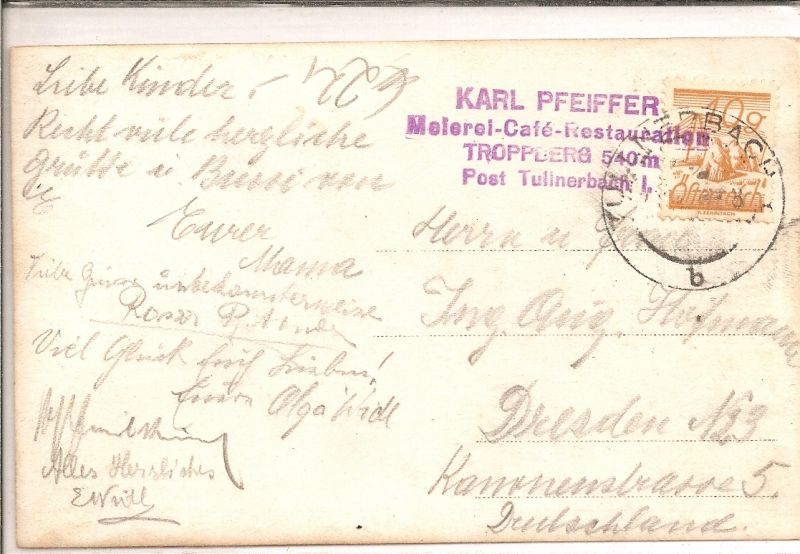 Liebe Kinder!
Recht viele herzliche
Grüße u. Bussi von
Eurer
Mama
Liebe Grüsse unbekannterweise
Viel Glück Euch Lieben!
Eure Olga Widl
Alles Herzliches
EWidl
KARL PFEIFFER
Meierei-Café-Restauration
TROPPBERG 540m
Post Tullnerbach I.
10g
Österreich
TULLNERBACH
b
Herrn u Frau
Ing. Aug. Hofmann
Dresden N23
Kanonenstrasse 5.
Deutschland.